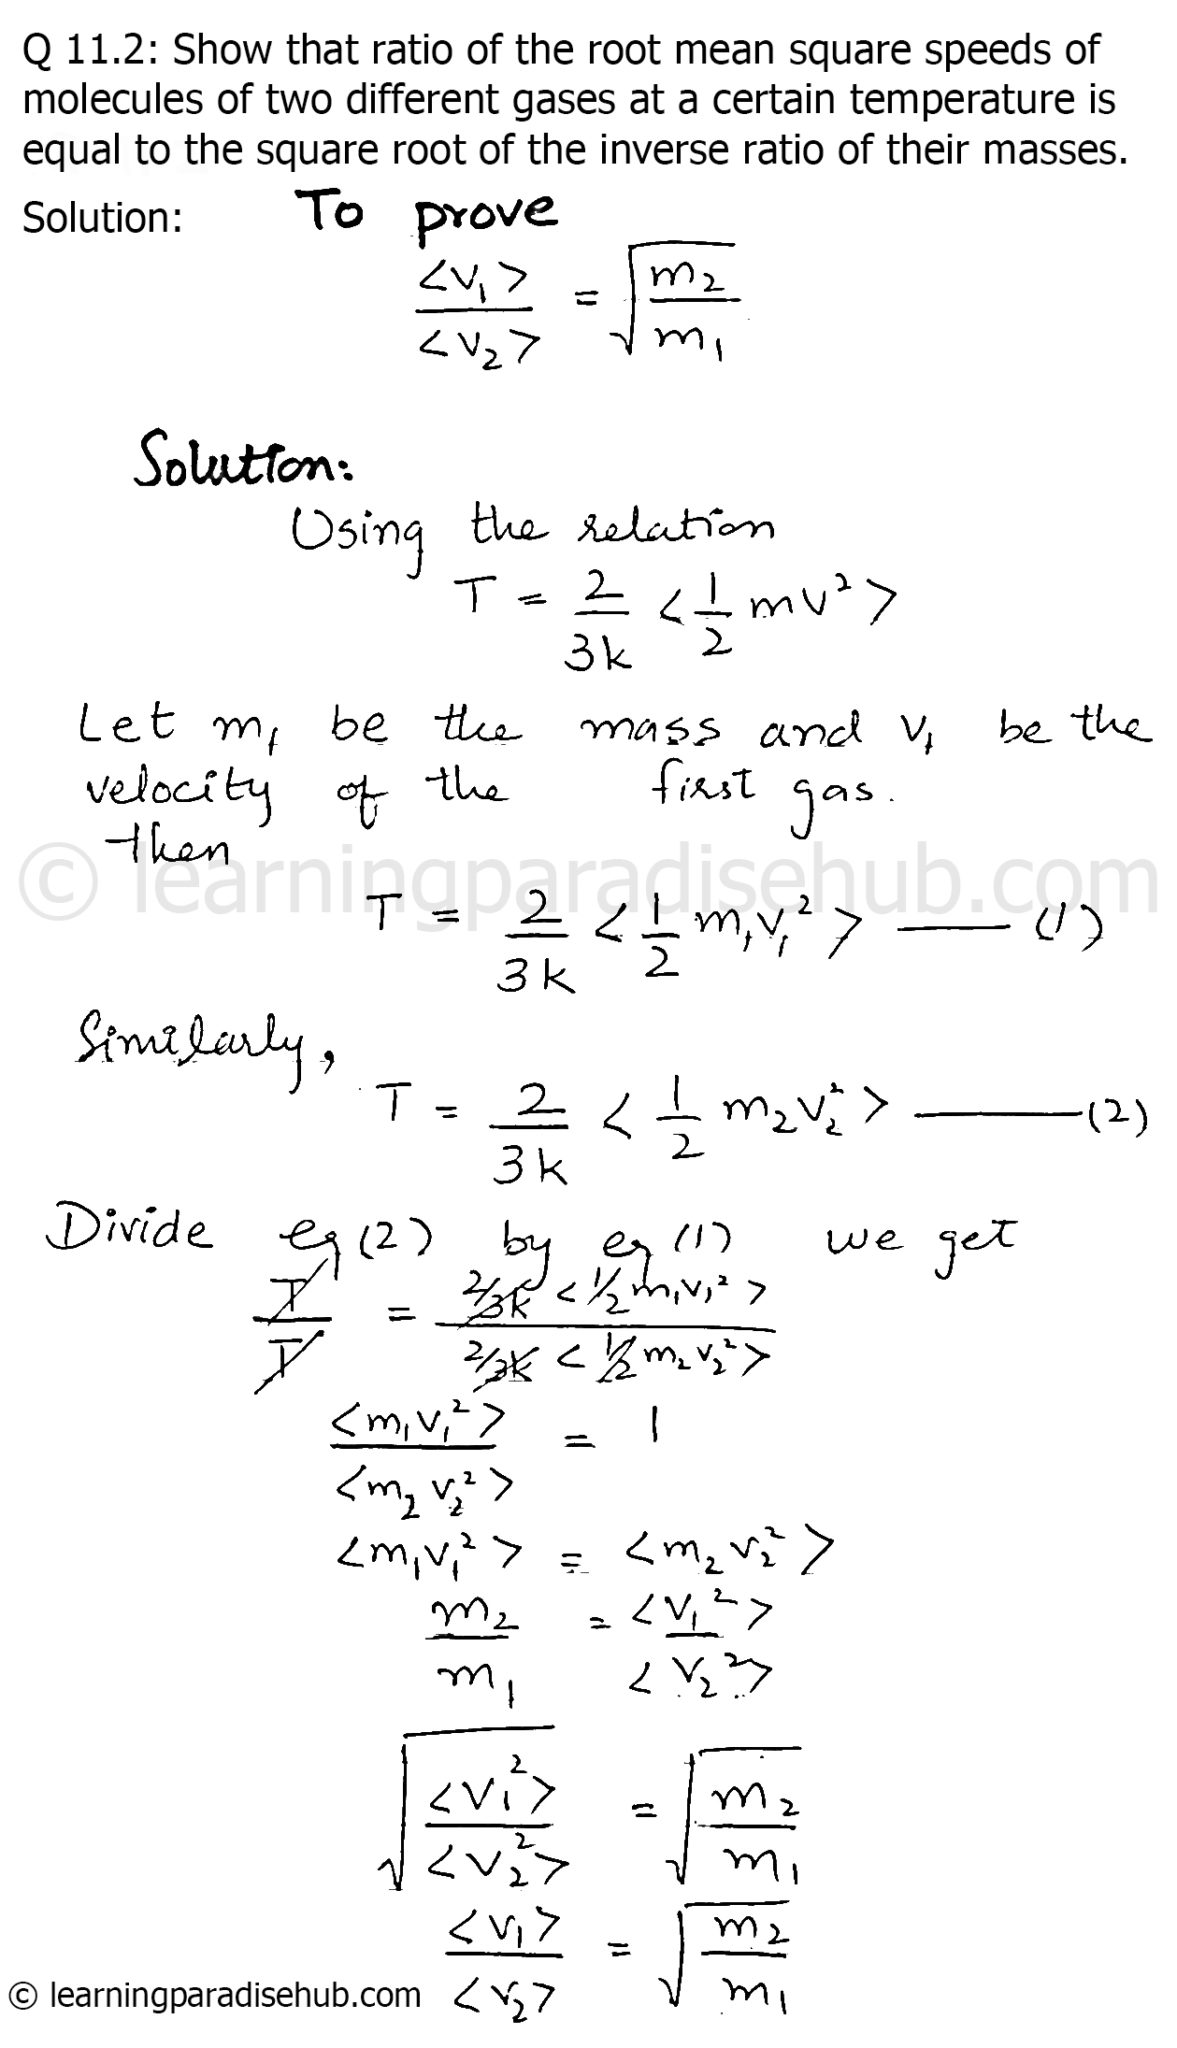 Q 11.2: Show that ratio of the root mean square speeds of
molecules of two different gases at a certain temperature is
equal to the square root of the inverse ratio of their masses.
Solution: To prove
<v₁>/<v₂> = √(m₂/m₁)
Solution:
Using the relation
T = 2/3k <1/2 mv²>
Let m₁ be the mass and v₁ be the
velocity of the first gas.
then
© learningparadisehub.com
T = 2/3k <1/2 m₁v₁²> —— (1)
Similarly,
T = 2/3k <1/2 m₂v₂²> ——— (2)
Divide eq (2) by eq (1) we get
T/T = 2/3k <1/2 m₁v₁²> / 2/3k <1/2 m₂v₂²>
<m₁v₁²>/<m₂v₂²> = 1
<m₁v₁²> = <m₂v₂²>
m₂/m₁ = <v₁²>/<v₂²>
√(<v₁²>/<v₂²>) = √(m₂/m₁)
<v₁>/<v₂> = √(m₂/m₁)
© learningparadisehub.com